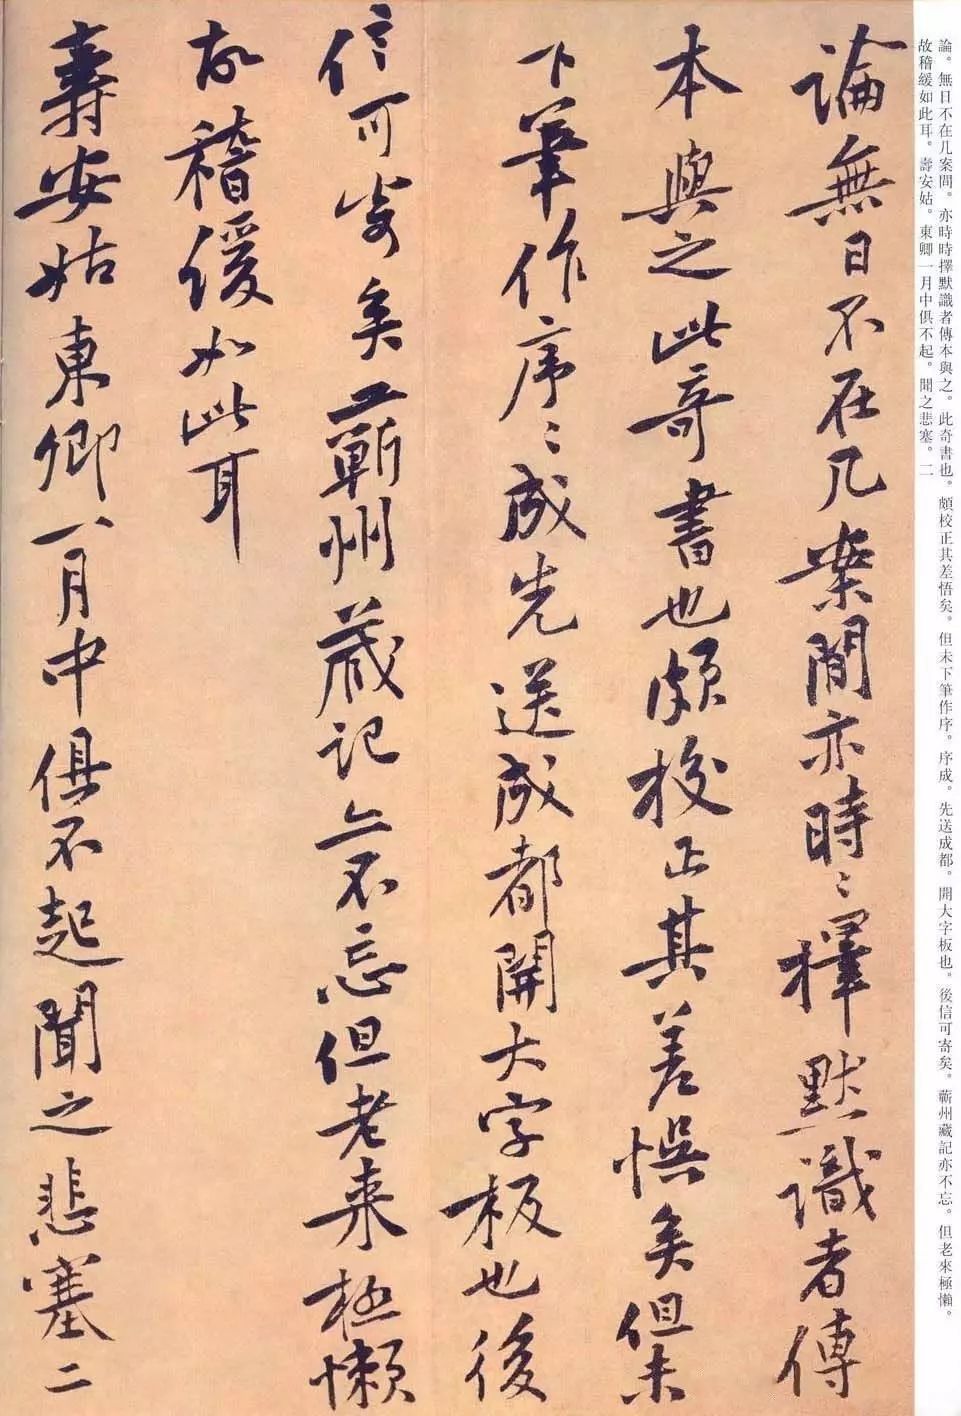 論。無日不在几案間。亦時時擇默識者傳本與之。此奇書也。頗校正其差悟矣。但未下筆作序。序成。先送成都。開大字板也。後信可寄矣。蘄州藏記亦不忘。但老來極懶。
故稽緩如此耳。壽安姑。東卿一月中俱不起。聞之悲塞。二
論無日不在几案間亦時〻擇默識者傳
本與之此奇書也頗校正其差悞矣但未
下筆作序〻成先送成都開大字板也後
信可寄矣蘄州藏記亦不忘但老来極懶
故稽緩如此耳
壽安姑東卿一月中俱不起聞之悲塞二